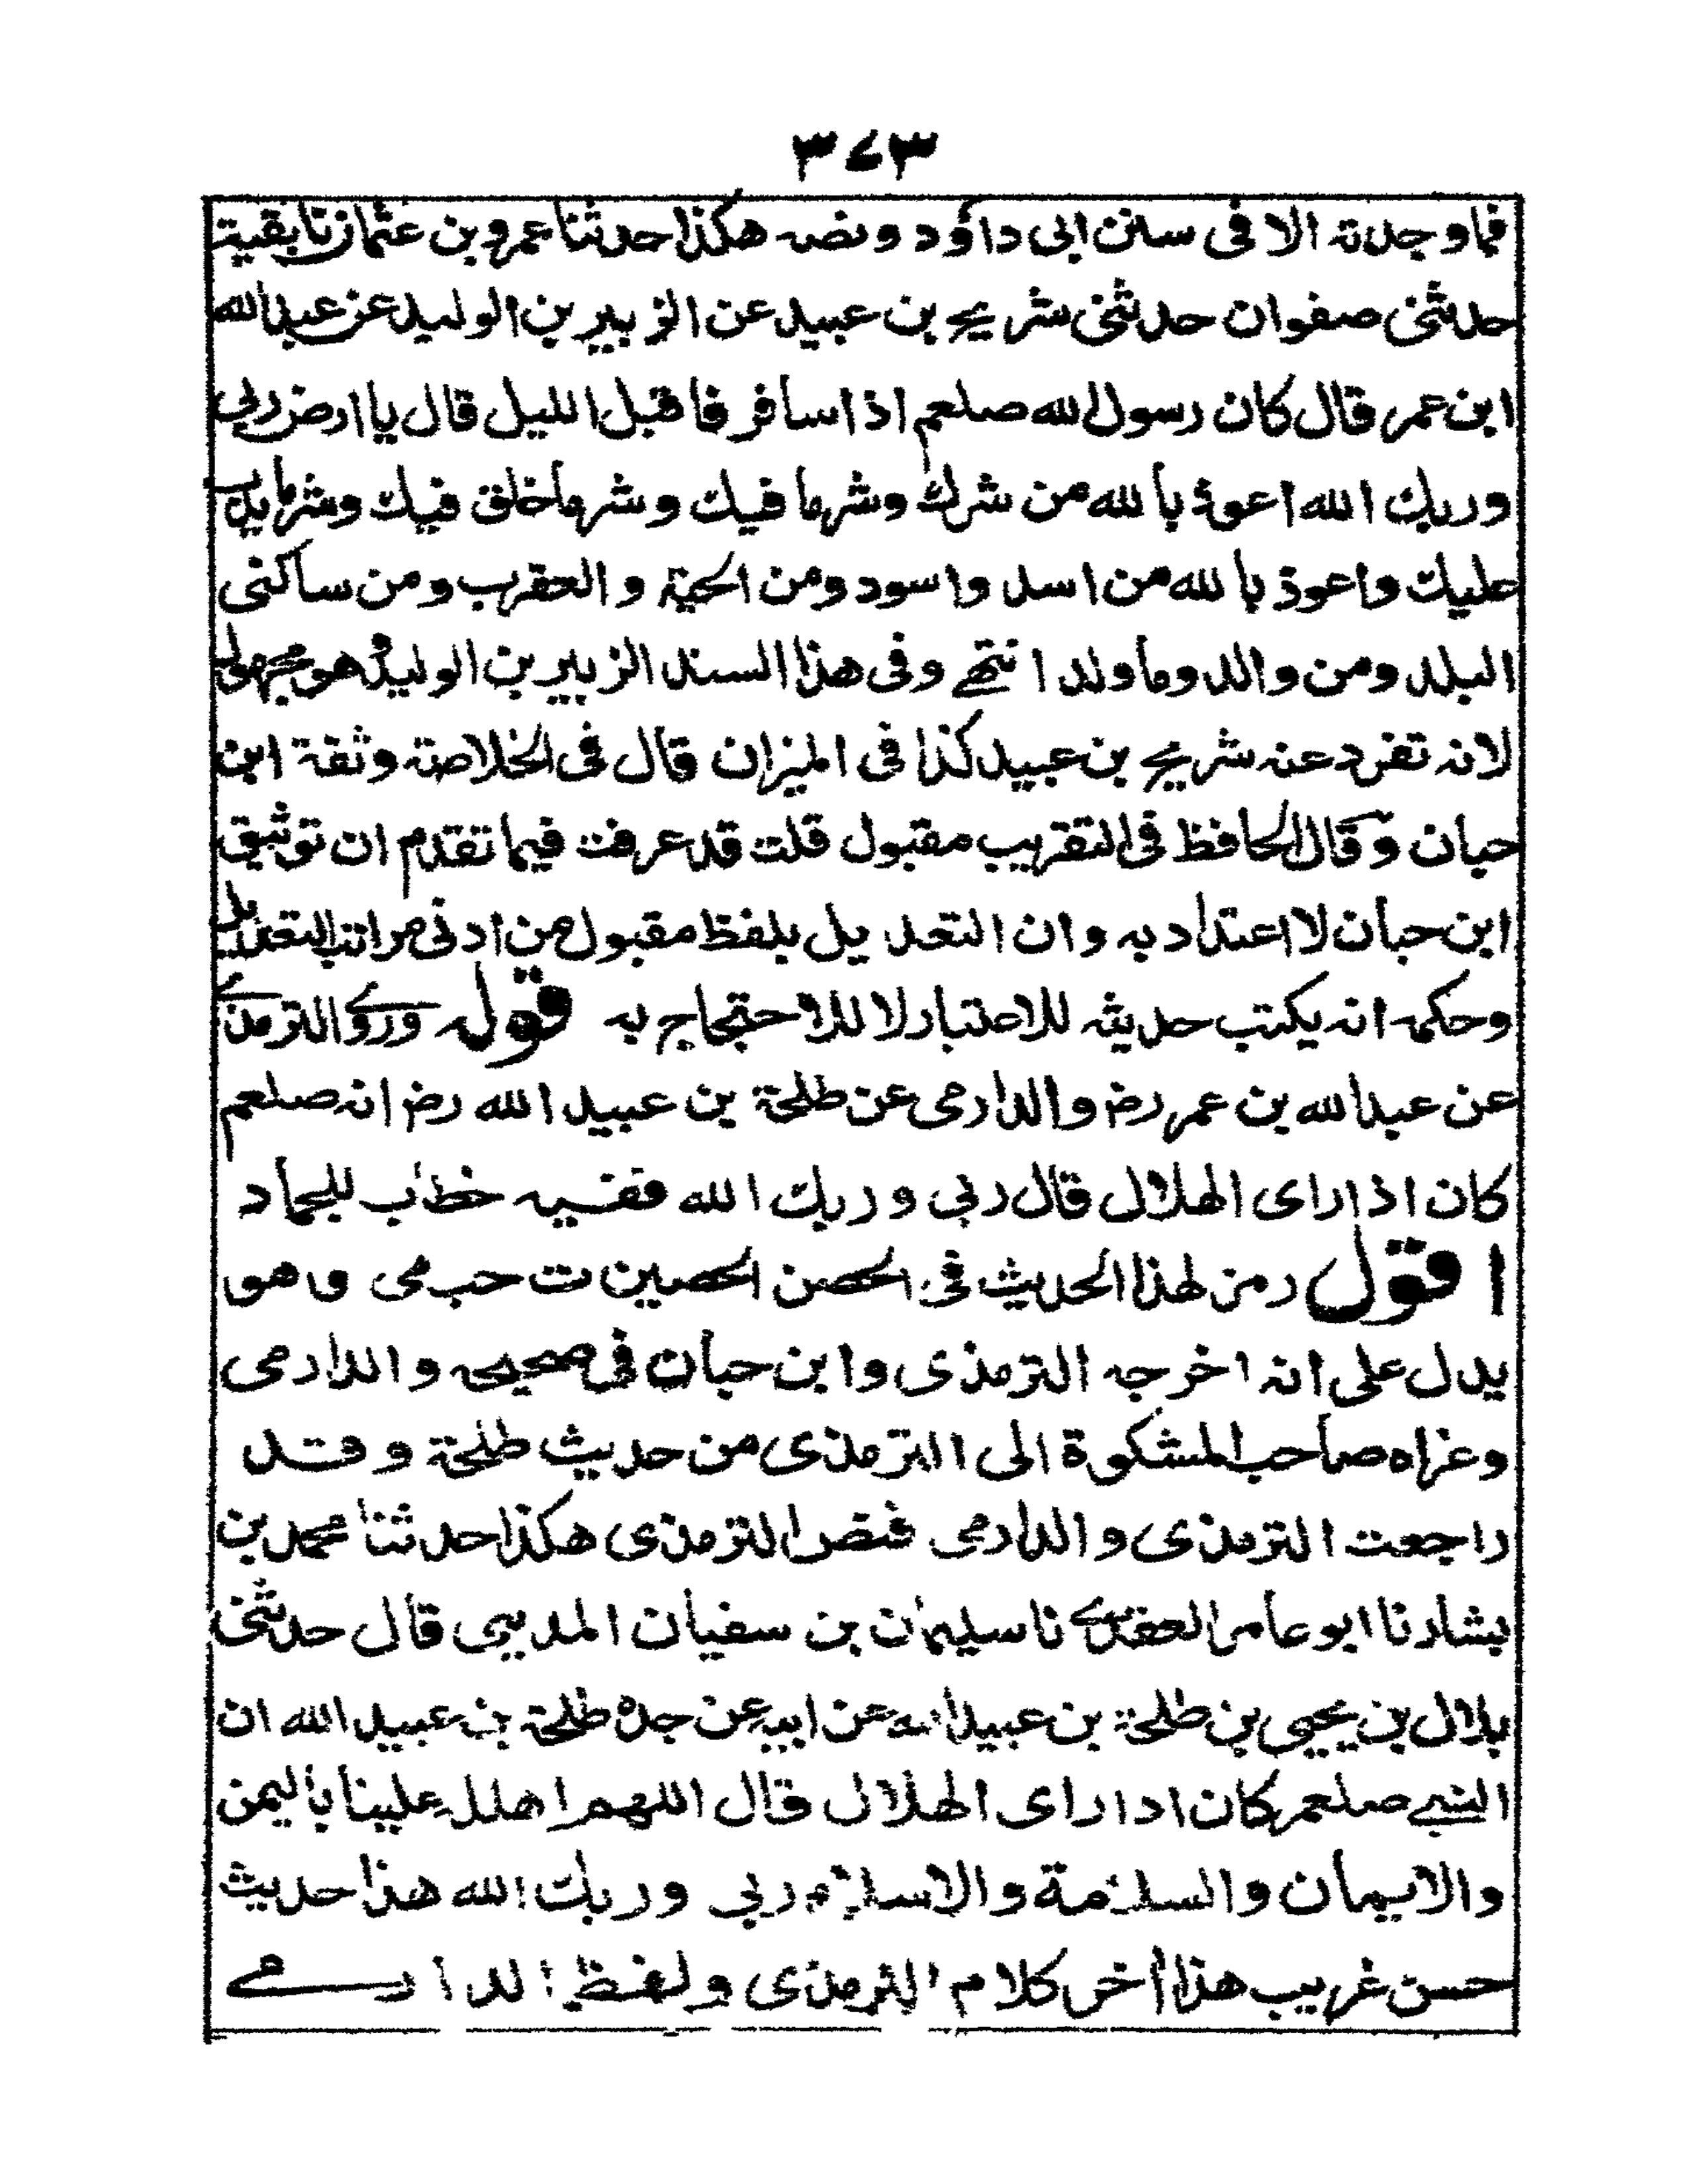 ٣٧٣
فما وجدته الا فى سنن ابى داؤد ونصه هكذا حدثنا عمرو بن عثمان نا بقية
حدثنى صفوان حدثنى شريح بن عبيد عن الزبير بن الوليد عن عبد الله
ابن عمر قال كان رسول الله صلعم اذا سافر فاقبل الليل قال يا ارض ربى
وربك الله اعوذ بالله من شرك وشرما فيك وشرما خلق فيك وشرما يدب
عليك واعوذ بالله من اسد واسود ومن الحية والعقرب ومن ساكنى
البلد ومن والد وما ولد انتهى وفى هذا السند الزبير بن الوليد وهو مجهول
لانه تفرد عنه شريح بن عبيد كذا فى الميزان قال فى الخلاصة وثقة ابن
حبان وقال الحافظ فى التقريب مقبول قلت قد عرفت فيما تقدم ان توثيق
ابن حبان لا اعتداد به وان التعديل بلفظ مقبول من ادنى مراتب التعديل
وحكمه انه يكتب حديثه للاعتبار لا للاحتجاج به قوله وروى الترمذى
عن عبد الله بن عمر رض والدارمى عن طلحة بن عبيد الله رض انه صلعم
كان اذا راى الهلال قال ربى وربك الله ففيه خطاب للجماد
اقول رمز لهذا الحديث فى الحصن الحصين ت حب مى وهو
يدل على انه اخرجه الترمذى وابن حبان فى صحيحه والدارمى
وعزاه صاحب المشكوة الى الترمذى من حديث طلحة وقد
راجعت الترمذى والدارمى فنص الترمذى هكذا حدثنا محمد بن
بشار نا ابو عامر العقدى نا سليمان بن سفيان المدينى قال حدثنى
بلال بن يحيى بن طلحة بن عبيد الله عن ابيه عن جده طلحة بن عبيد الله ان
النبى صلعم كان اذا راى الهلال قال اللهم اهلله علينا باليمن
والايمان والسلامة والاسلام ربى وربك الله هذا حديث
حسن غريب هذا أخر كلام الترمذى ولفظ الدارمى